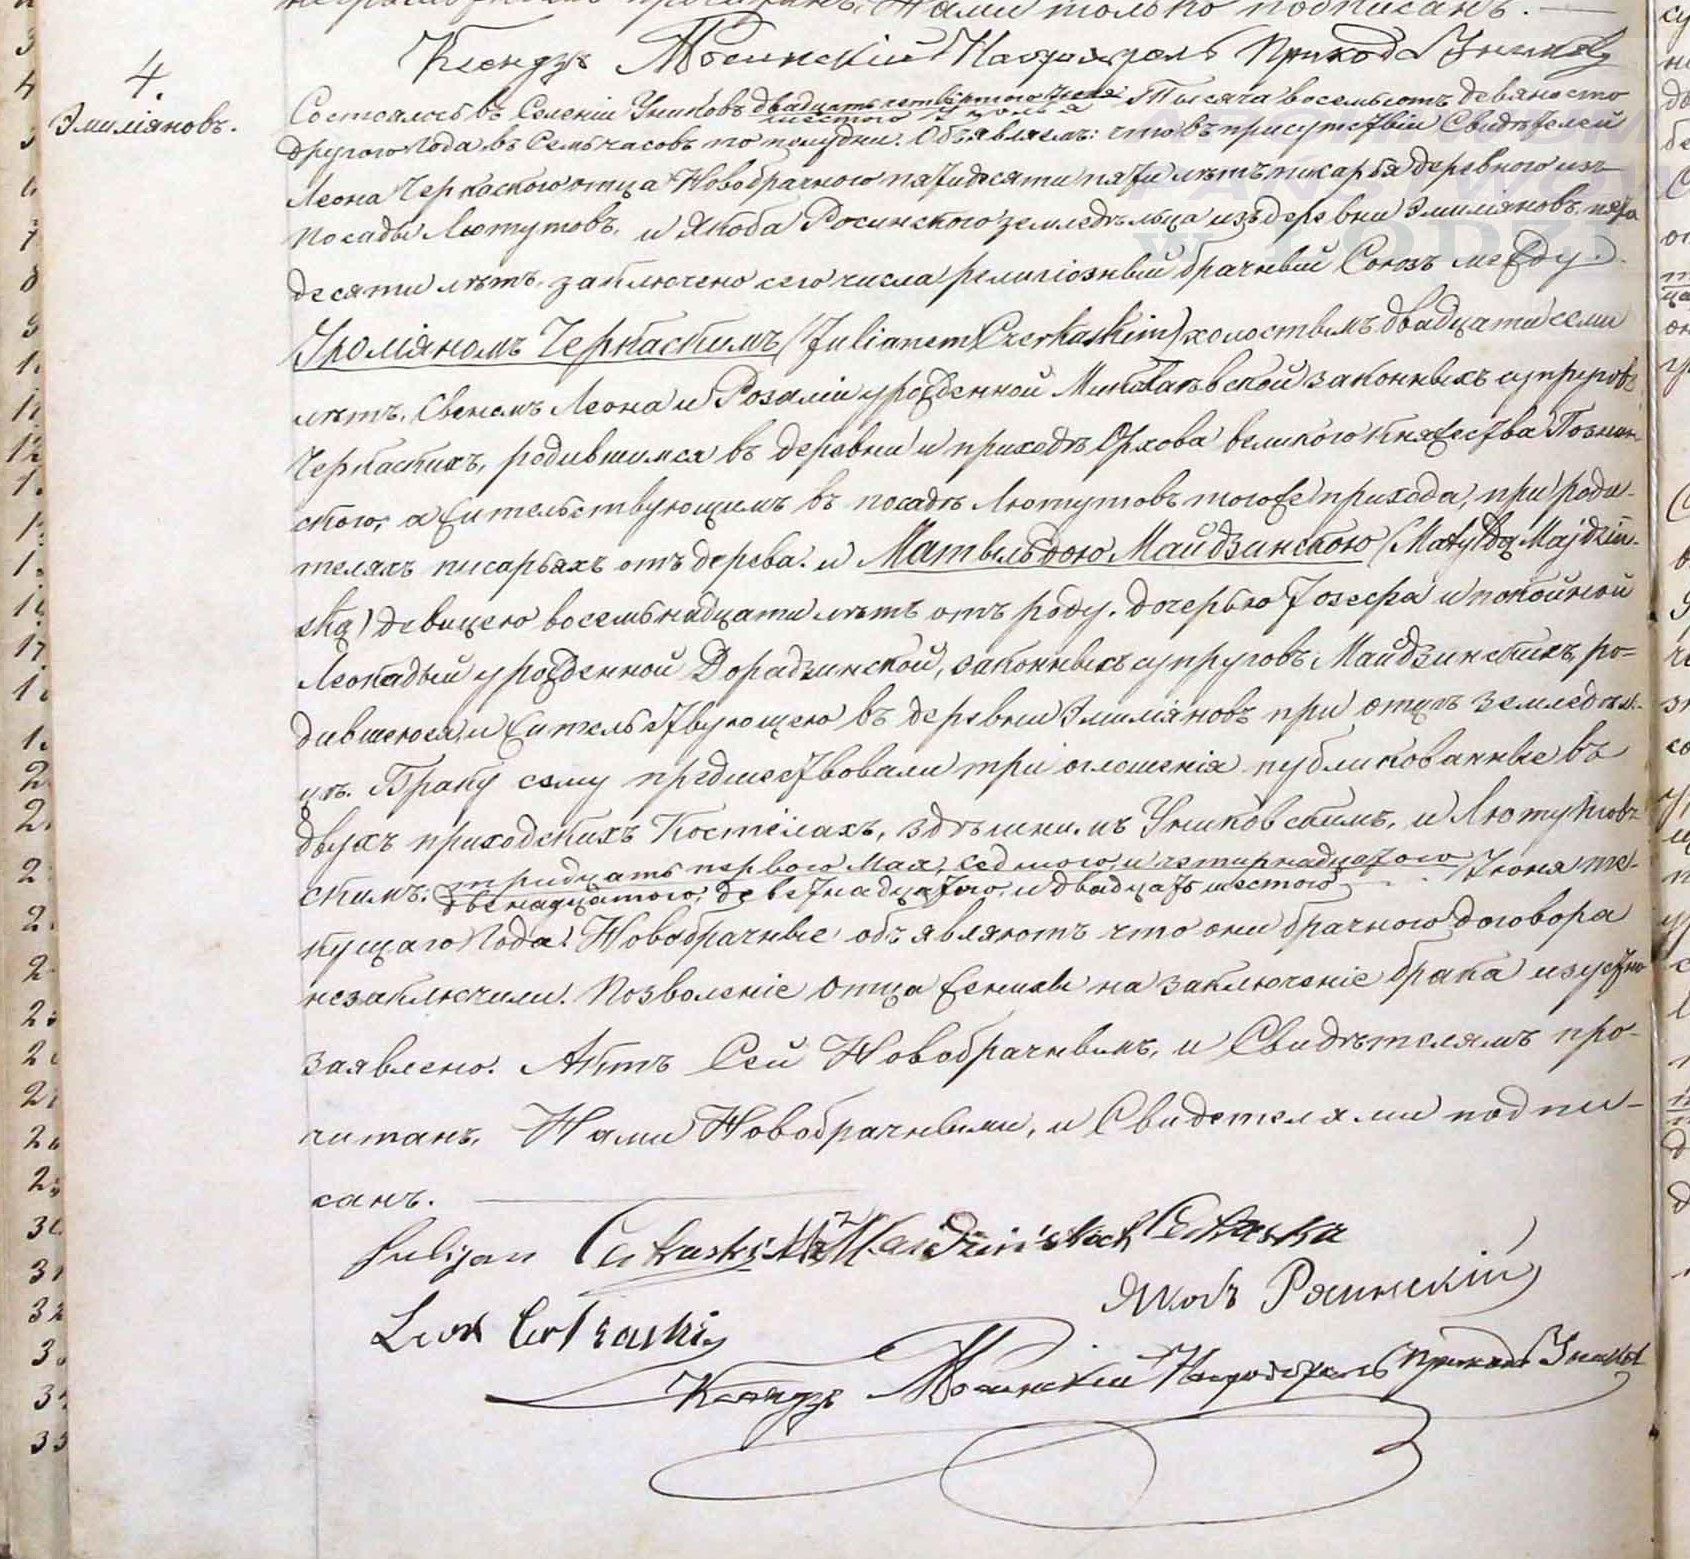 Нами только подписанъ.
Ксендзъ Мосинскій Настоятель Прихода Униковъ
4.
Эмиліяновъ.
Состоялось въ Селеніи Униковъ двадцать четвёртого Іюня Тысяча восемьсотъ девяносто
шестого Іюля
другого Года въ Семь часовъ по полудни. Объявляемъ: что въ присутствіи Свидѣтелей
Леона Черкаского отца Новобрачного пятидесяти пяти лѣтъ писарья деревного изъ
посады Лютутовъ, и Якоба Росинского земледѣльца изъ деревни Эмиліяновъ, пяти
десяти лѣтъ, заключено сего числа религіозный брачный Союзъ между:
Юліяномъ Черкаскимъ (Julianem Czerkaskim) холостымъ двадцати семи
лѣтъ, Сыномъ Леона и Розаліи урожденной законныхъ супруговъ
Черкаскихъ, родившимся въ деревни и приходѣ Орхова великого Княжества Познан-
ского, а жительствующимъ въ посадѣ Лютутовъ тогоже прихода, при роди-
теляхъ писарьяхъ отъ дерева. и Матыльдою Майдзинскою (Matyldą Majdziń-
ską) девицею восемьнадцати лѣтъ отъ роду, дочерью Іозефа и покойной
Леокадыи урожденной Дорадзинской, законныхъ супруговъ Майдзинскихъ, ро-
дившеюся и жительствующею въ деревни Эмиліяновъ при отцѣ земледѣл-
цѣ. Браку сему предшествовали три оглошенія публикованные въ
двухъ приходскихъ Костёлахъ, здѣшнимъ Униковскимъ, и Лютутов-
скимъ: тридцать первого Мая, седмого и четырнадцатого Іюня те-
двенадцатого, деветнадцатого, и двадцать шестого
кущаго Года. Новобрачные объявляютъ что они брачного договора
незаключили. Позволеніе отца жениха на заключеніе брака изустно
заявлено. Актъ Сей Новобрачнымъ, и Свидѣтелямъ про-
читанъ, Нами Новобрачными, и Свидетелями подпи-
санъ.
Julijan Cerkaski Majdzińskich Cerkaska
Якобъ Росинскій
Leon Cerkaski
Ксендзъ Мосинскій Настоятель Прихода Униковъ